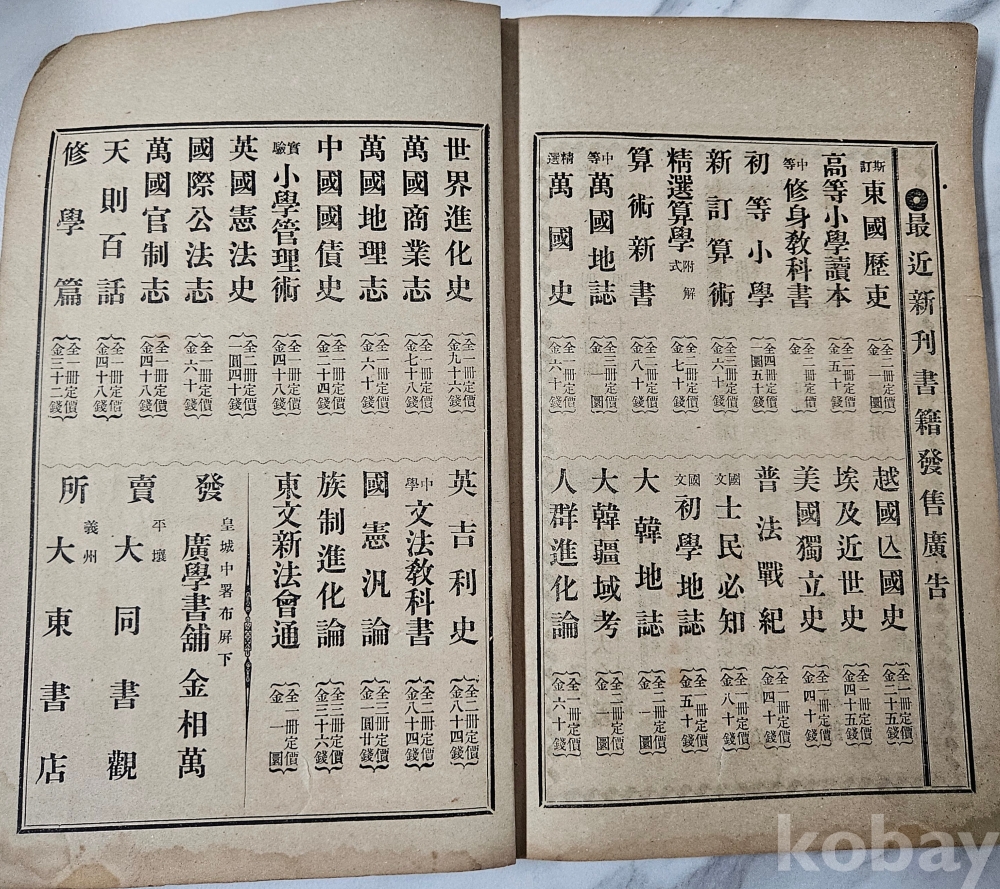 最近新刊書籍發售廣告
新訂 東國歷史 全二冊定價金一圜
高等小學讀本 全二冊定價金五十錢
中等 修身敎科書 全二冊定價金一
初等小學 全四冊定價一圜五十錢
新訂算術 全三冊定價金六十錢
精選算學 附解式 全二冊定價金七十錢
算術新書 全二冊定價金八十錢
中等 萬國地誌 全三冊定價金一圜
精選 萬國史 全一冊定價金六十錢
越國亾國史 全一冊定價金二十五錢
埃及近世史 全一冊定價金四十五錢
美國獨立史 全一冊定價金四十錢
普法戰紀 全一冊定價金四十錢
國文 士民必知 全一冊定價金八十錢
國文 初學地誌 全一冊定價金五十錢
大韓地誌 全二冊定價金一圜
大韓疆域考 全二冊定價金一圜
人群進化論 全一冊定價金六十錢
世界進化史 全一冊定價金九十六錢
萬國商業志 全一冊定價金七十八錢
萬國地理志 全一冊定價金六十錢
中國國債史 全一冊定價金二十四錢
實驗 小學管理術 全一冊定價金四十八錢
英國憲法史 全一冊定價一圜四十錢
國際公法志 全一冊定價金六十錢
萬國官制志 全一冊定價金四十八錢
天則百話 全一冊定價金四十八錢
修學篇 全一冊定價金三十二錢
英吉利史 全二冊定價金八十四錢
中學 文法敎科書 全二冊定價金八十四錢
國憲汎論 全三冊定價金一圜廿錢
族制進化論 全三冊定價金三十六錢
東文新法會通 全一冊定價金一圜
發賣所
皇城中署布屛下
廣學書舖 金相萬
平壤 大同書觀
義州 大東書店
kobay